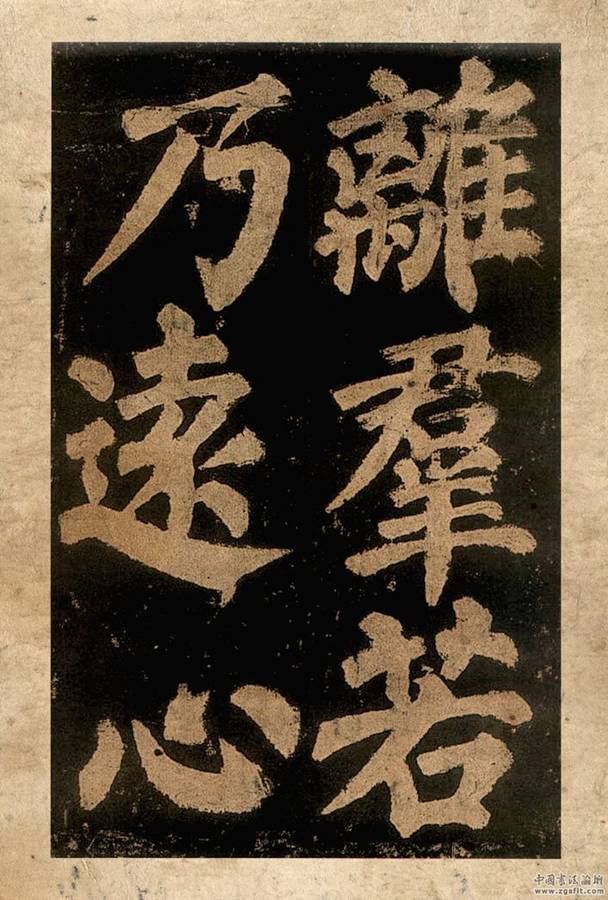 離羣若
乃遠心
中國書法論壇
www.zgsflt.com